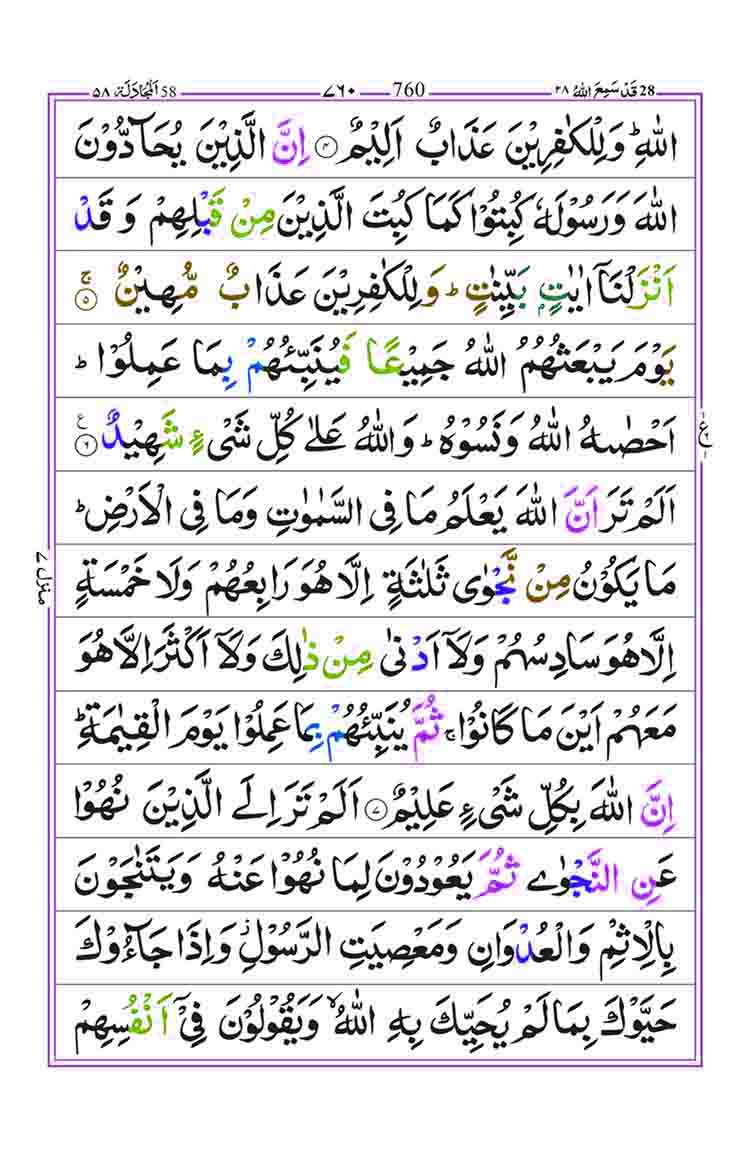 28 قَدْ سَمِعَ اللّٰهُ ۲۸ 760 ۷۶۰ 58 اَلْمُجَادَلَة ۵۸
اللّٰهِ ؕ وَ لِلْكٰفِرِیْنَ عَذَابٌ اَلِیْمٌ ۴ اِنَّ الَّذِیْنَ یُحَآدُّوْنَ
اللّٰهَ وَ رَسُوْلَهٗ كُبِتُوْا كَمَا كُبِتَ الَّذِیْنَ مِنْ قَبْلِهِمْ وَ قَدْ
اَنْزَلْنَاۤ اٰیٰتٍۭ بَیِّنٰتٍ ؕ وَ لِلْكٰفِرِیْنَ عَذَابٌ مُّهِیْنٌ ۚ ۵
یَوْمَ یَبْعَثُهُمُ اللّٰهُ جَمِیْعًا فَیُنَبِّئُهُمْ بِمَا عَمِلُوْا ؕ
اَحْصٰىهُ اللّٰهُ وَ نَسُوْهُ ؕ وَ اللّٰهُ عَلٰى كُلِّ شَیْءٍ شَهِیْدٌ ۶ ع
ع
اَلَمْ تَرَ اَنَّ اللّٰهَ یَعْلَمُ مَا فِی السَّمٰوٰتِ وَ مَا فِی الْاَرْضِ ؕ
مَا یَكُوْنُ مِنْ نَّجْوٰى ثَلٰثَةٍ اِلَّا هُوَ رَابِعُهُمْ وَ لَا خَمْسَةٍ
منزل ۷
اِلَّا هُوَ سَادِسُهُمْ وَ لَاۤ اَدْنٰى مِنْ ذٰلِكَ وَ لَاۤ اَكْثَرَ اِلَّا هُوَ
مَعَهُمْ اَیْنَ مَا كَانُوْا ۚ ثُمَّ یُنَبِّئُهُمْ بِمَا عَمِلُوْا یَوْمَ الْقِیٰمَةِ ؕ
اِنَّ اللّٰهَ بِكُلِّ شَیْءٍ عَلِیْمٌ ۷ اَلَمْ تَرَ اِلَى الَّذِیْنَ نُهُوْا
عَنِ النَّجْوٰى ثُمَّ یَعُوْدُوْنَ لِمَا نُهُوْا عَنْهُ وَ یَتَنٰجَوْنَ
بِالْاِثْمِ وَ الْعُدْوَانِ وَ مَعْصِیَتِ الرَّسُوْلِ ؗ وَ اِذَا جَآءُوْكَ
حَیَّوْكَ بِمَا لَمْ یُحَیِّكَ بِهِ اللّٰهُ ۙ وَ یَقُوْلُوْنَ فِیْۤ اَنْفُسِهِمْ